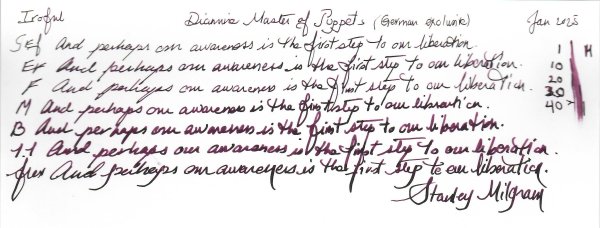 Iroful Diamine Master of Puppets (German exclusive) Jan 2025
SEf And perhaps our awareness is the first step to our liberation. 1 M
Ef And perhaps our awareness is the first step to our liberation. 10
F And perhaps our awareness is the first step to our liberation. 20
M And perhaps our awareness is the first step to our liberation. 30
B And perhaps our awareness is the first step to our liberation. 40
1.1 And perhaps our awareness is the first step to our liberation.
flex And perhaps our awareness is the first step to our liberation.
Stanley Milgram